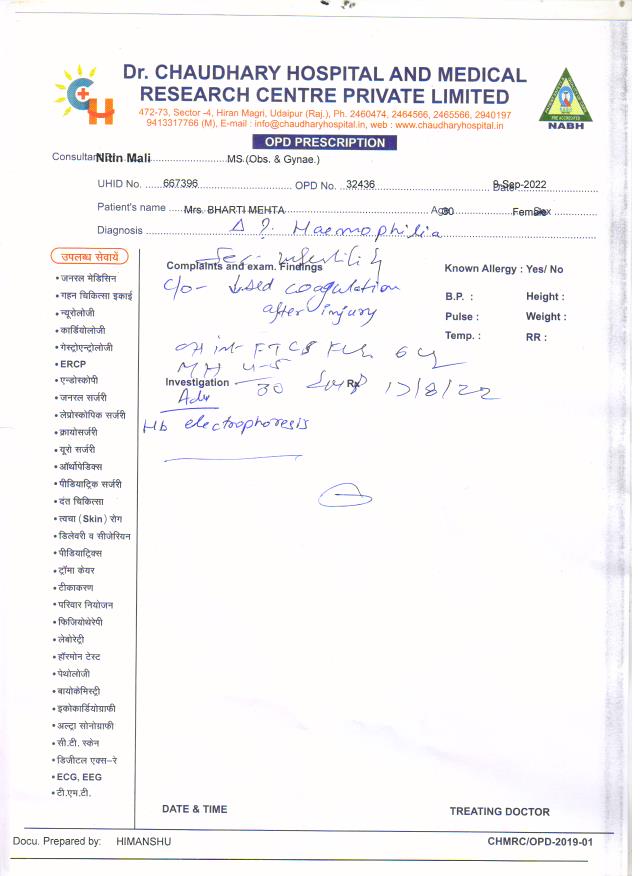 Dr. CHAUDHARY HOSPITAL AND MEDICAL
RESEARCH CENTRE PRIVATE LIMITED
472-73, Sector -4, Hiran Magri, Udaipur (Raj.), Ph. 2460474, 2464566, 2465566, 2940197
9413317766 (M), E-mail : info@chaudharyhospital.in, web : www.chaudharyhospital.in
NABH
OPD PRESCRIPTION
Consultant Nitin Mali MS.(Obs. & Gynae.)
UHID No. 667396 OPD No. 32436 Date 9-Sep-2022
Patient's name Mrs. BHARTI MEHTA Age 30 Sex Female
Diagnosis Δ ? Haemophilia
Sec. infertility
उपलब्ध सेवायें
Complaints and exam. Findings
Known Allergy : Yes/ No
C/o - ↓sed coagulation
after injury
B.P. : Height :
Pulse : Weight :
Temp. : RR :
FTCS
MH 4-5
30
Investigation
Rx
17/8/22
Adv
Hb electrophoresis
• जनरल मेडिसिन
• गहन चिकित्सा इकाई
• न्यूरोलॉजी
• कार्डियोलॉजी
• गेस्ट्रोएन्ट्रोलॉजी
• ERCP
• एन्डोस्कोपी
• जनरल सर्जरी
• लेप्रोस्कोपिक सर्जरी
• क्रायोसर्जरी
• यूरो सर्जरी
• ऑर्थोपेडिक्स
• पीडियाट्रिक सर्जरी
• दंत चिकित्सा
• त्वचा (Skin) रोग
• डिलेवरी व सीजेरियन
• पीडियाट्रिक्स
• ट्रॉमा केयर
• टीकाकरण
• परिवार नियोजन
• फिजियोथेरेपी
• लेबोरेट्री
• हॉरमोन टेस्ट
• पेथोलॉजी
• बायोकेमिस्ट्री
• इकोकार्डियोग्राफी
• अल्ट्रा सोनोग्राफी
• सी.टी. स्केन
• डिजीटल एक्स-रे
• ECG, EEG
• टी.एम.टी.
DATE & TIME
TREATING DOCTOR
Docu. Prepared by: HIMANSHU
CHMRC/OPD-2019-01